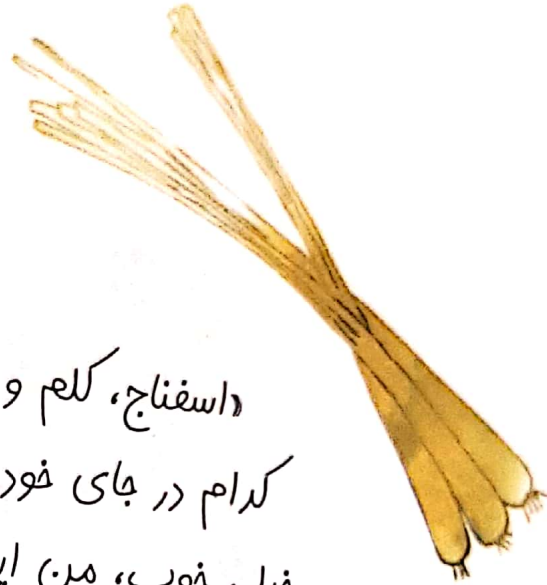 «اسفناج، کلم و
کدام در جای خود
خیلی خوب، من این